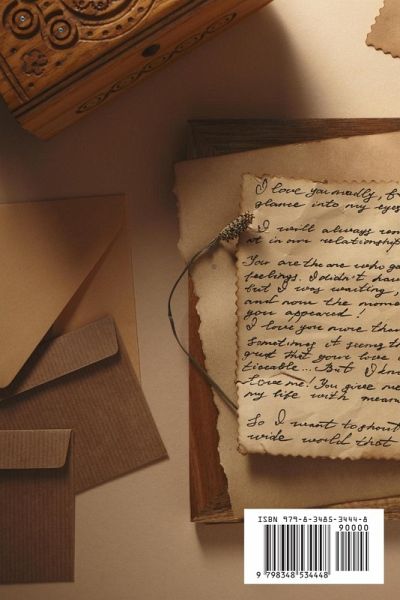 I love you madly, f
glance into my eyes
I will always rem
at in our relationship
You are the one who ga
feelings. I didn't hav
but I was waiting,
and now the mome
you appeared!
I love you more than
Sometimes it seems th
gust that your love
ticeable... But I kn
Love me! You give me
my life with mean
So I want to shout
wide world that
ISBN 979-8-3485-3444-8
90000
9 798348 534448